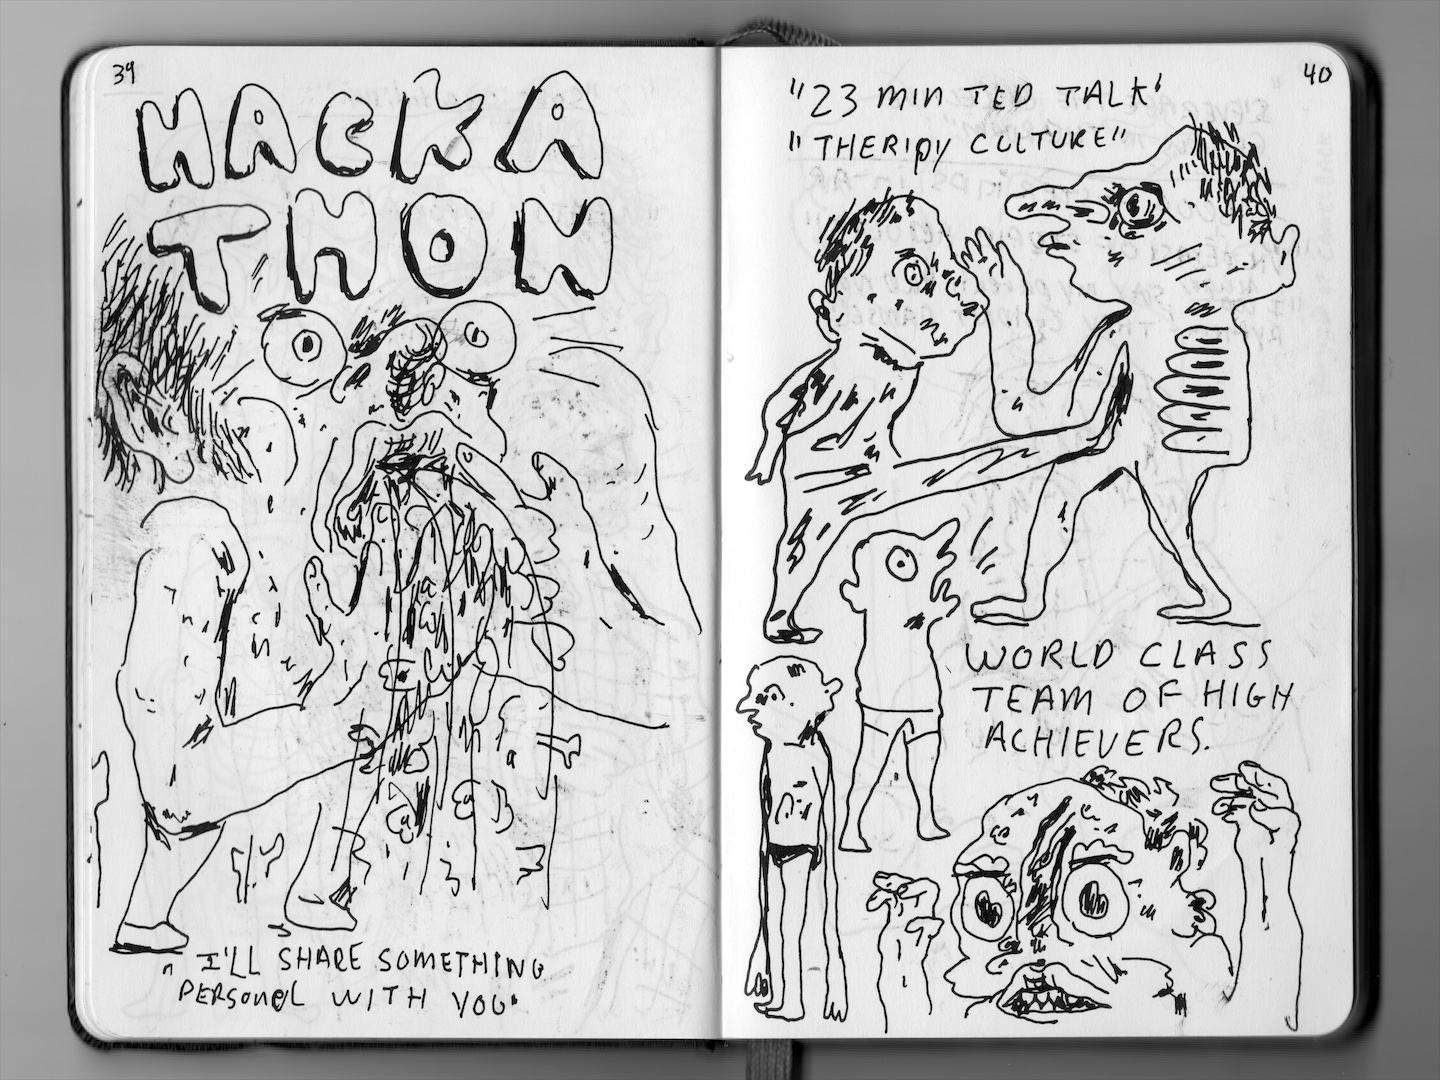 39
HACKA
THON
"I'LL SHARE SOMETHING
PERSONAL WITH YOU"
40
"23 MIN TED TALK'
"THERIPY CULTURE"
WORLD CLASS
TEAM OF HIGH
ACHIEVERS.